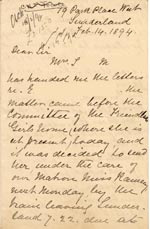 19 Park Place West
Sunderland
Feb. 14. 1894.
Dear Sir
Mrs. S M
has handed me the letters
re. E the
matter came before the
Committee of the Friendly
Girls Home, where she is
at present, today and
it was decided to send
her under the care of
our Matron Miss Ramsey
next Monday by the
train leaving Sunder-
land 7.22. due at